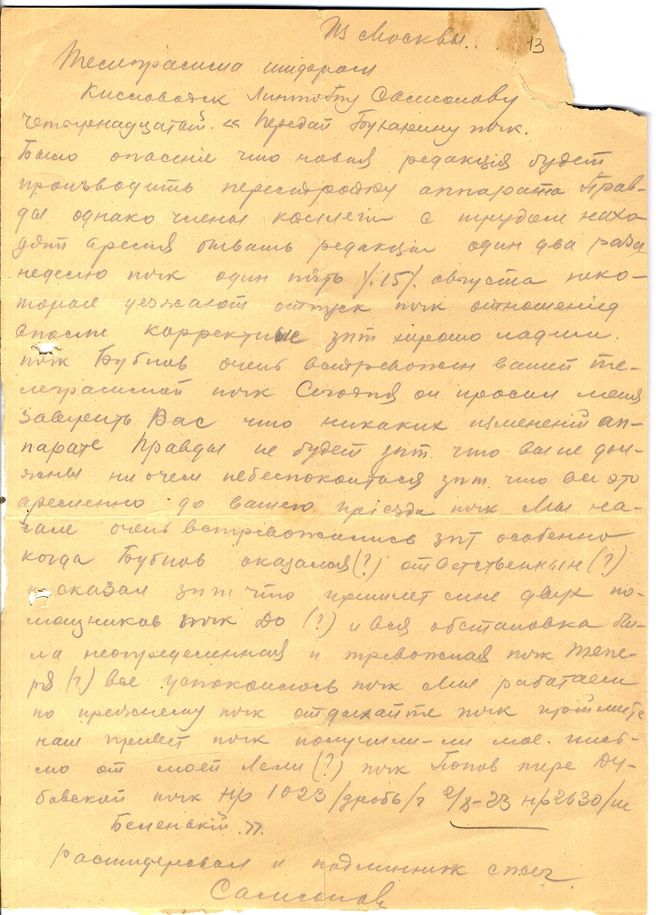 Из Москвы.. 13
Телеграмма шифром
Кисловодск Самсонову
Четырнадцатый. « Передай Бухарину тчк.
Было опасение что новая редакция будет
производить перестройку аппарата Прав-
ды однако члены коллегии с трудом нахо-
дят время бывать редакции один два раза
неделю тчк один пять /.15/. августа неко-
торые уезжают отпуск тчк отношения
вполне корректные зпт хорошо ладим.
тчк Бубнов очень встревожен вашей те-
леграммой тчк Сегодня он просил меня
заверить Вас что никаких изменений ап-
парате Правды не будет зпт что вы не дол-
жны ни о чем небеспокоиться зпт что все это
временно до вашего приезда тчк Мы на-
чале очень встревожились зпт особенно
когда Бубнов оказался (?) ответственным (?)
и сказал зпт что пришлет мне двух по-
мощников тчк До (?) и вся обстановка бы-
ла неопределенная и тревожная тчк Тепе-
рь (?) все успокоилось тчк Мы работаем
по прежнему тчк отдыхайте тчк примите
наш привет тчк получили-ли мое. пись-
мо от моей (?) тчк Попов пере Ду-
бовской тчк Нр 1023/дробь/г 2/8-23 нр2630/ш
Беленький. ».
Расшифровал и подлинник сжег
Самсонов